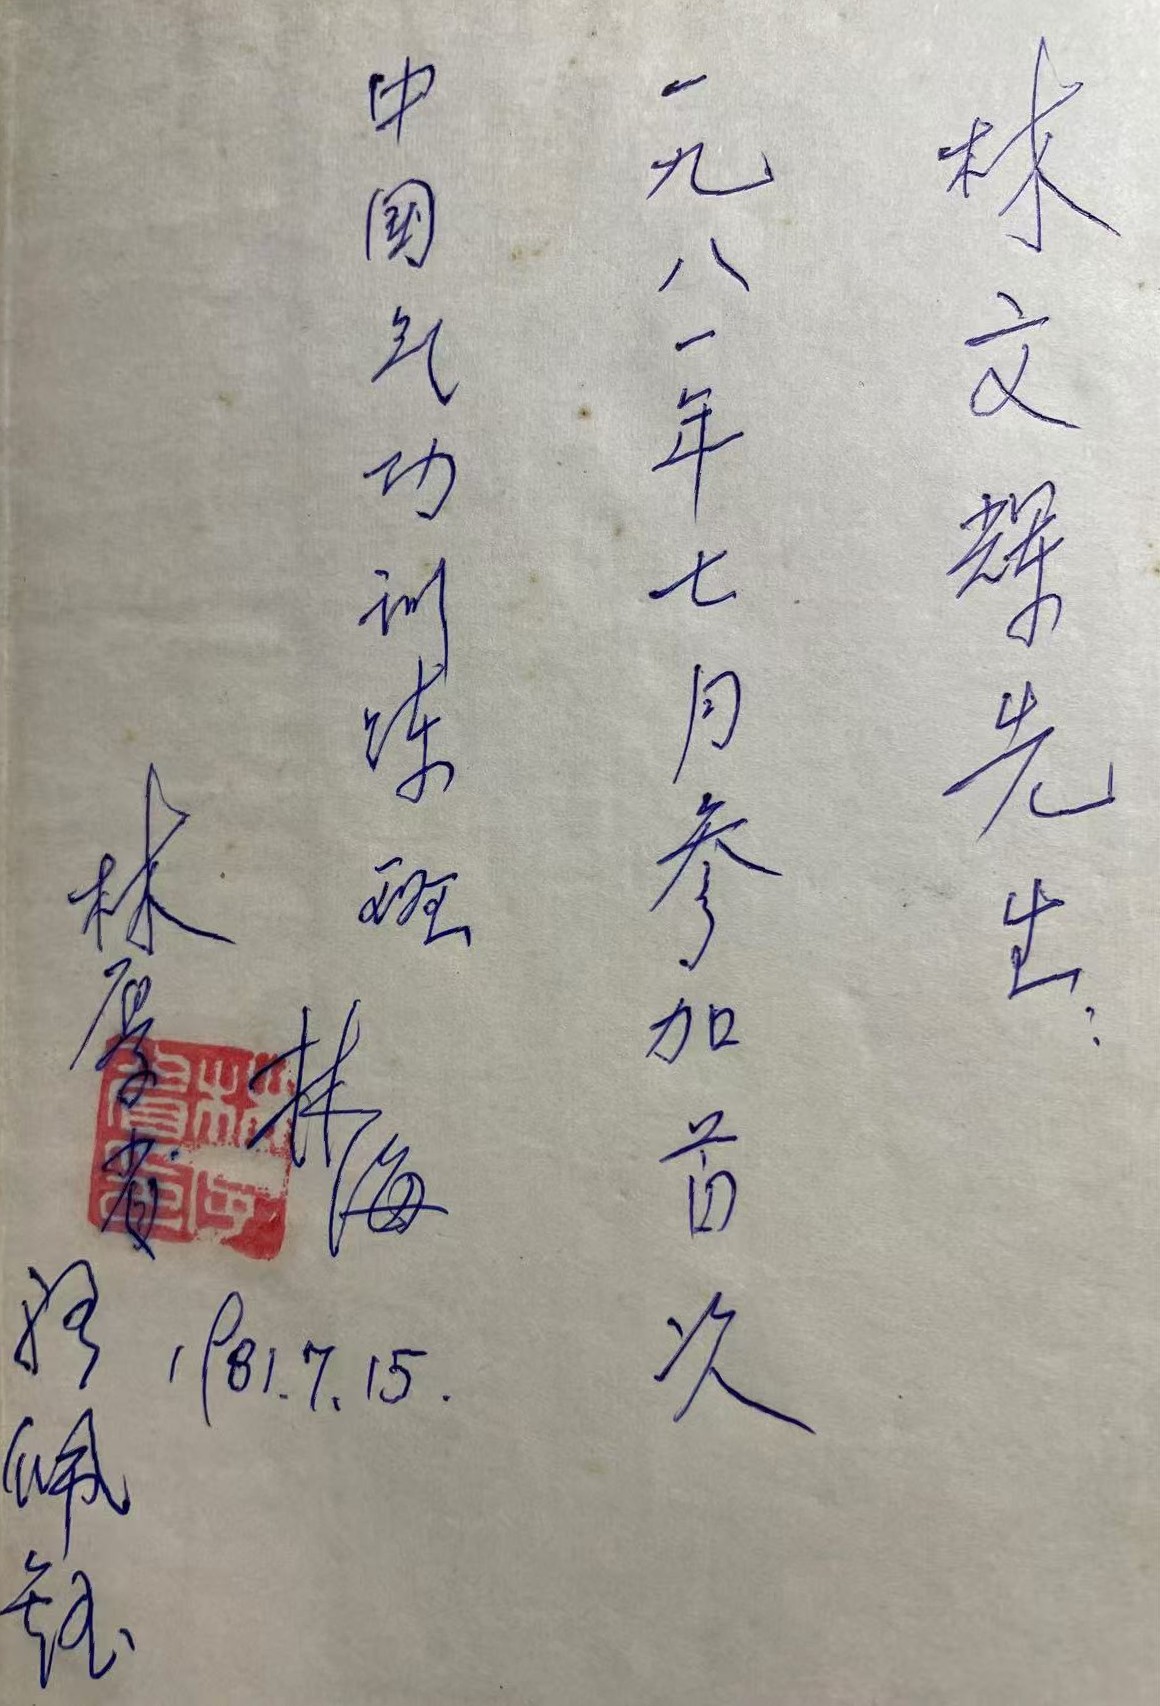 林文辉先生：
一九八一年七月参加首次
中国气功训练班
林海
林厚省
骆佩钰
1981.7.15.